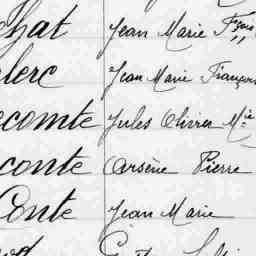 Chat Jean Marie Fçois
clerc Jean Marie François
ecomte Jules Olivier Mie
conte Arsène Pierre
Conte Jean Marie